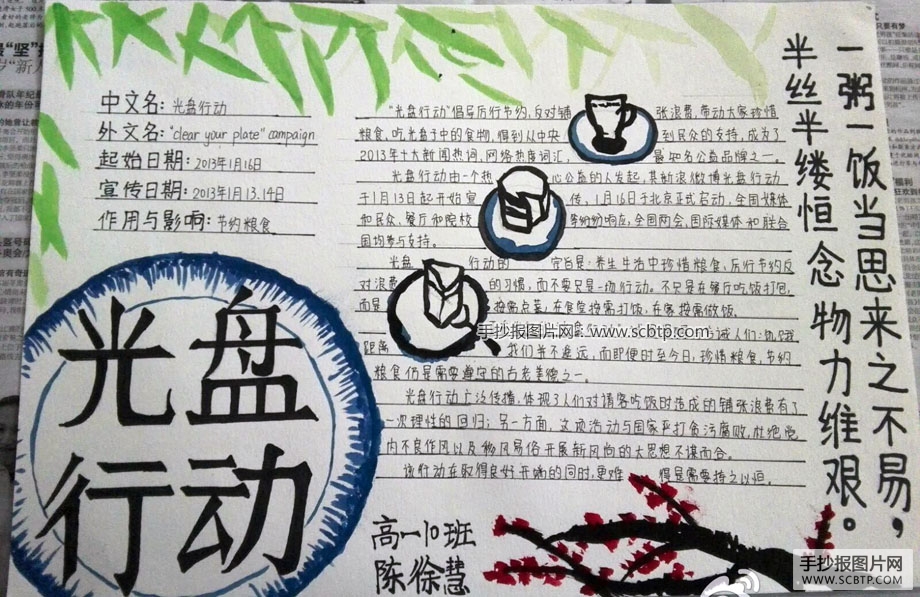 中文名:光盘行动
外文名:"clear your plate" campaign
起始日期:2013年1月16日
宣传日期:2013年1月13.14日
作用与影响:节约粮食
光盘
行动
"光盘行动"倡导厉行节约,反对铺张浪费,带动大家珍惜
粮食、吃光盘子中的食物,得到从中央到民众的支持,成为了
2013年十大新闻热词、网络热度词汇,最知名公益品牌之一。
光盘行动由一个热心公益的人发起,其新浪微博光盘行动
于1月13日起开始宣传,1月16日于北京正式启动,全国媒体
和民众、餐厅和院校等纷纷响应,全国两会、国际媒体和联合
国均参与支持。
光盘行动的宗旨是:养生生活中珍惜粮食、厉行节约反
对浪费的习惯,而不要只是一场行动。不只是在餐厅吃饭打包,
而是按需点菜,在食堂按需打饭,在家按需做饭。
手抄报图片网:www.scbtp.com
诫人们:饥饿
距离我们并不遥远,而即便时至今日,珍惜粮食,节约
粮食仍是需要遵守的古老美德之一。
光盘行动广泛传播,体现了人们对请客吃饭时造成的铺张浪费有了
一次理性的回归;另一方面,这项活动与国家严打贪污腐败,杜绝党
内不良作风以及移风易俗开展新风尚的大思想不谋而合。
该行动在取得良好开端的同时,更难得是需要持之以恒。
一粥一饭当思来之不易,
半丝半缕恒念物力维艰。
高一10班
陈徐慧
手抄报图片网
WWW.SCBTP.COM